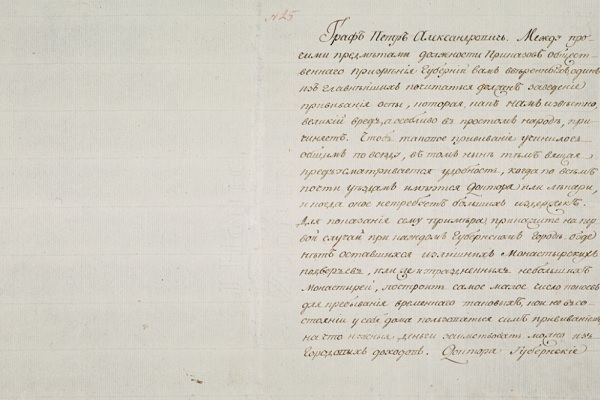 № 25
Графъ Петръ Александровичь. Между про-
симы предметами должности Приказовъ общест-
веннаго призрѣнія Губерній вамъ ввѣренныхъ, одинъ
изъ главнѣйшихъ почитаться долженъ заведеніе
прививанія оспы, которая, какъ намъ извѣстно,
великій вредъ, а особливо въ простомъ народѣ, при-
чиняетъ. Чтобъ таковое прививаніе учинилось
общимъ повсюду, въ томъ нынѣ тѣмъ вящая
предусматривается удобность, когда по всѣмъ
почти уѣздамъ имѣются Доктора или лѣкари,
и когда оное не требуетъ большихъ издержекъ.
Для показанія сему примѣра, прикажите на пер-
вой случай при каждомъ Губернскомъ Городѣ, буде
нѣтъ оставшихся излишнихъ Монастырскихъ
подворьевъ, или упраздненныхъ небольшихъ
Монастырей, построить самое малое число покоевъ
для пребыванія временнаго таковыхъ, кои не въ со-
стояніи у себя дома пользоваться симъ прививаніемъ,
на что нужныя деньги заимствовать можно изъ
Городскихъ доходовъ. Доктора Губернскіе